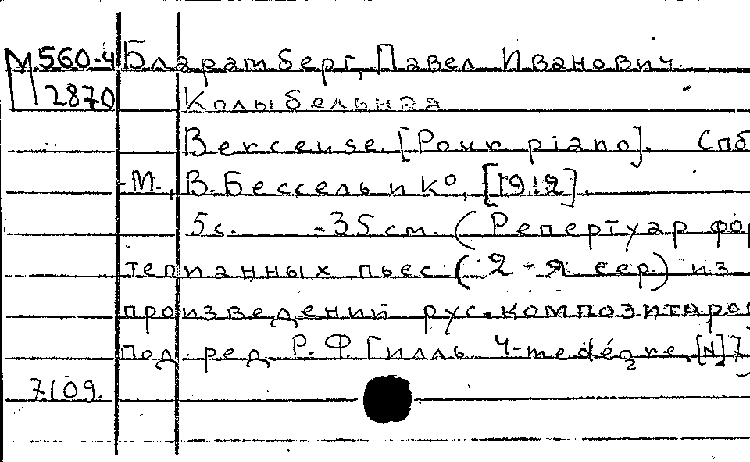 М 560-4 Бларамберг, Павел Иванович
2870 Колыбельная
Berceuse. [Pour piano]. Спб
-М., В. Бессель и К°, [1912].
5с. -35см. (Репертуар фор
тепианных пьес (2-я сер.) из
произведений рус. композитаров
под ред. Р. Ф Гилль 4-me dégre, [N] 7)
7109.